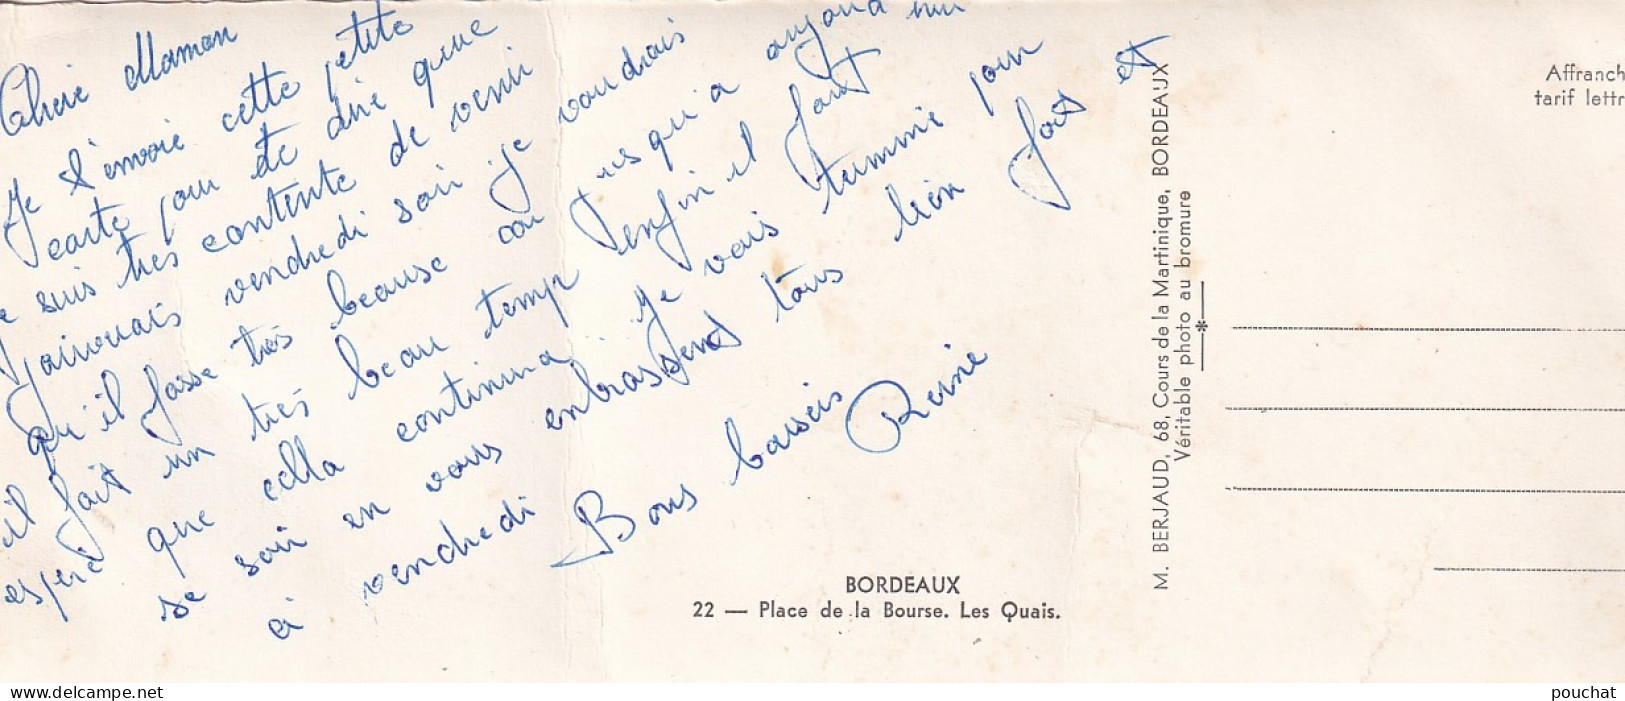 Cherie Maman
Je t'envoie cette petite
carte pour te dire que
je suis tres contente de venir
vendredi soir je voudrais
qu'il fasse très beause car
jusqu'a aujourd'hui
il fait un très beau temp enfin il faut
espere que cella continura. Je vais terminé pour
se soir en vous enbrassend tous bien fort et
à vendredi
Bons baisers
Reine
BORDEAUX
22 — Place de la Bourse. Les Quais.
M. BERJAUD, 68, Cours de la Martinique, BORDEAUX
Véritable photo au bromure
Affranch
tarif lettr
www.delcampe.net
pouchat